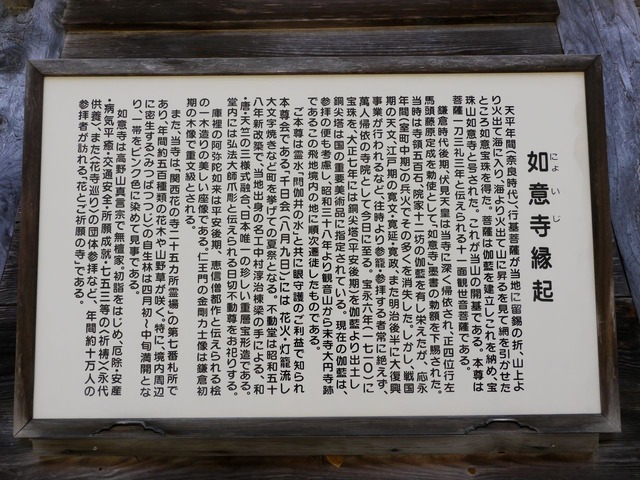 にょいじ
如意寺縁起
天平年間(奈良時代)、行基菩薩が当地に留錫の折、山上よ
り火出て海に入り、海より火出て山に昇るを見て網を引かせた
ところ如意宝珠を得た。菩薩は伽藍を建立しこれを納め、宝
珠山如意寺と号された。これが当山の開基である。本尊は
菩薩一刀三礼三年と伝えられる十一面観世音菩薩である。
鎌倉時代後期、伏見天皇は当寺に深く帰依され、正四位行左
馬頭藤原定成を勅使として「如意寺」墨書の勅額を下賜された。
当時は寺領五百石、院家十二坊の伽藍を有し栄えたが、応永
年間(室町中期)の兵火でその多くを消失した。しかし、戦国
期の天文、江戸期の寛文・寛延・寛政、また明治後半に大復興
事業が行われるなど、往時より参籠・参拝する者常に絶えず、
萬人帰依の寺院として今日に至る。宝永六年(一七一〇)に
宝珠を、大正七年には銅尖塔(平安後期)を伽藍より出土し
銅尖塔は国の重要美術品に指定されている。現在の伽藍は、
参拝の便も考慮し、昭和三十八年より観音山から末寺大円寺跡
であるこの飛地境内の地に順次遷徙したものである。
ご本尊は霊水「問伽井の水」と共に眼守護のご利益で知られ
本尊会である「千日会(八月九日)」には 花火・灯籠流し
大文字焼きなど町を挙げての夏祭となる。不動堂は昭和五十
八年新改築で、当地出身の名工中村淳治棟梁の手による、和
・唐・天竺の三様式融合、日本唯一の珍しい重層宝形造である。
堂内には弘法大師爪彫と伝えられる日切不動尊をお祀りする。
庫裡の阿弥陀如来は平安後期、恵信僧都作と伝えられる桧
の一木造りの美しい座像である。仁王門の金剛力士像は鎌倉初
期の木像で重文級とされる。
また、当寺は、「関西花の寺二十五カ所霊場」の第七番札所で
あり、年間約五百種類の花木や山野草が咲く。特に、境内周辺
に密生する〈みつばつつじ〉の自生林は四月初〜中旬満開とな
り、一帯をピンク色に染めて見事である。
如意寺は高野山真言宗で無檀家。初詣をはじめ、厄除・安産
・病気平癒・交通安全・所願成就・七五三等の〈祈祷〉〈永代
供養〉、また〈花寺巡り〉の団体参拝など、年間約十万人の
参拝者が訪れる、「花とご祈願の寺」である。